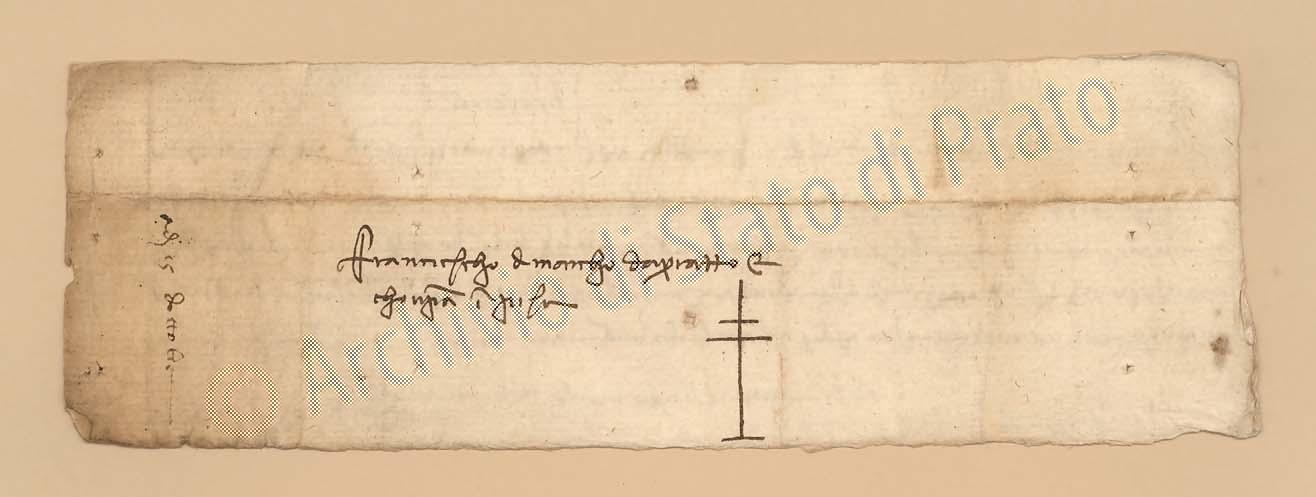 Franciescho d marcho da pratto e
chonpa i pisa
© Archivio di Stato di Prato